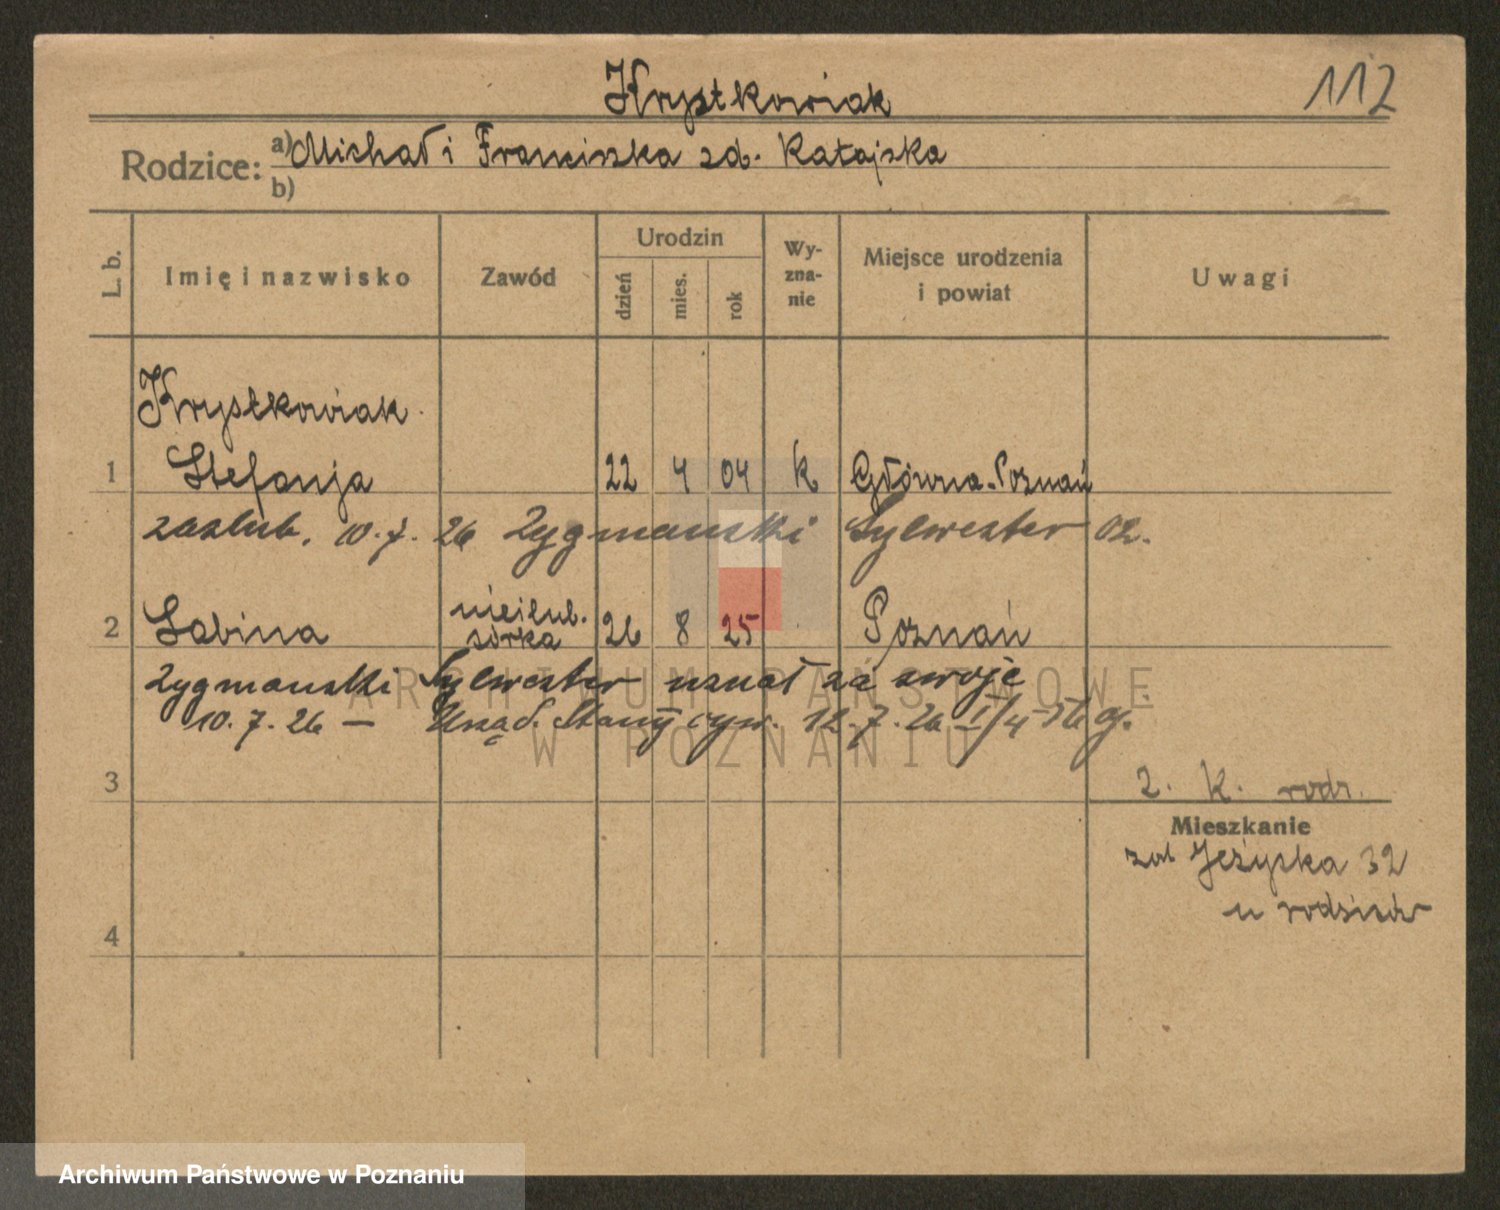 Krystkowiak
112
Rodzice: a) Michał i Franciszka zd. Ratajska
b)
L. b.
Imię i nazwisko
Zawód
Urodzin
dzień
mies.
rok
Wy-
zna-
nie
Miejsce urodzenia
i powiat
Uwagi
Krystkowiak
1 Stefanja 22 4 04 k Główna-Poznań
zaślub. 10.7.26 Zygmanski Sylwester 02.
2 Sabina nieślub. córka 26 8 25 Poznań
Zygmanski Sylwester uznał za swoje
10.7.26 — Urząd Stanu cyw. 12.7.26
3
2. k. rodz.
Mieszkanie
Jeżycka 32
u rodziców
4
ARCHIWUM PAŃSTWOWE
W POZNANIU
Archiwum Państwowe w Poznaniu